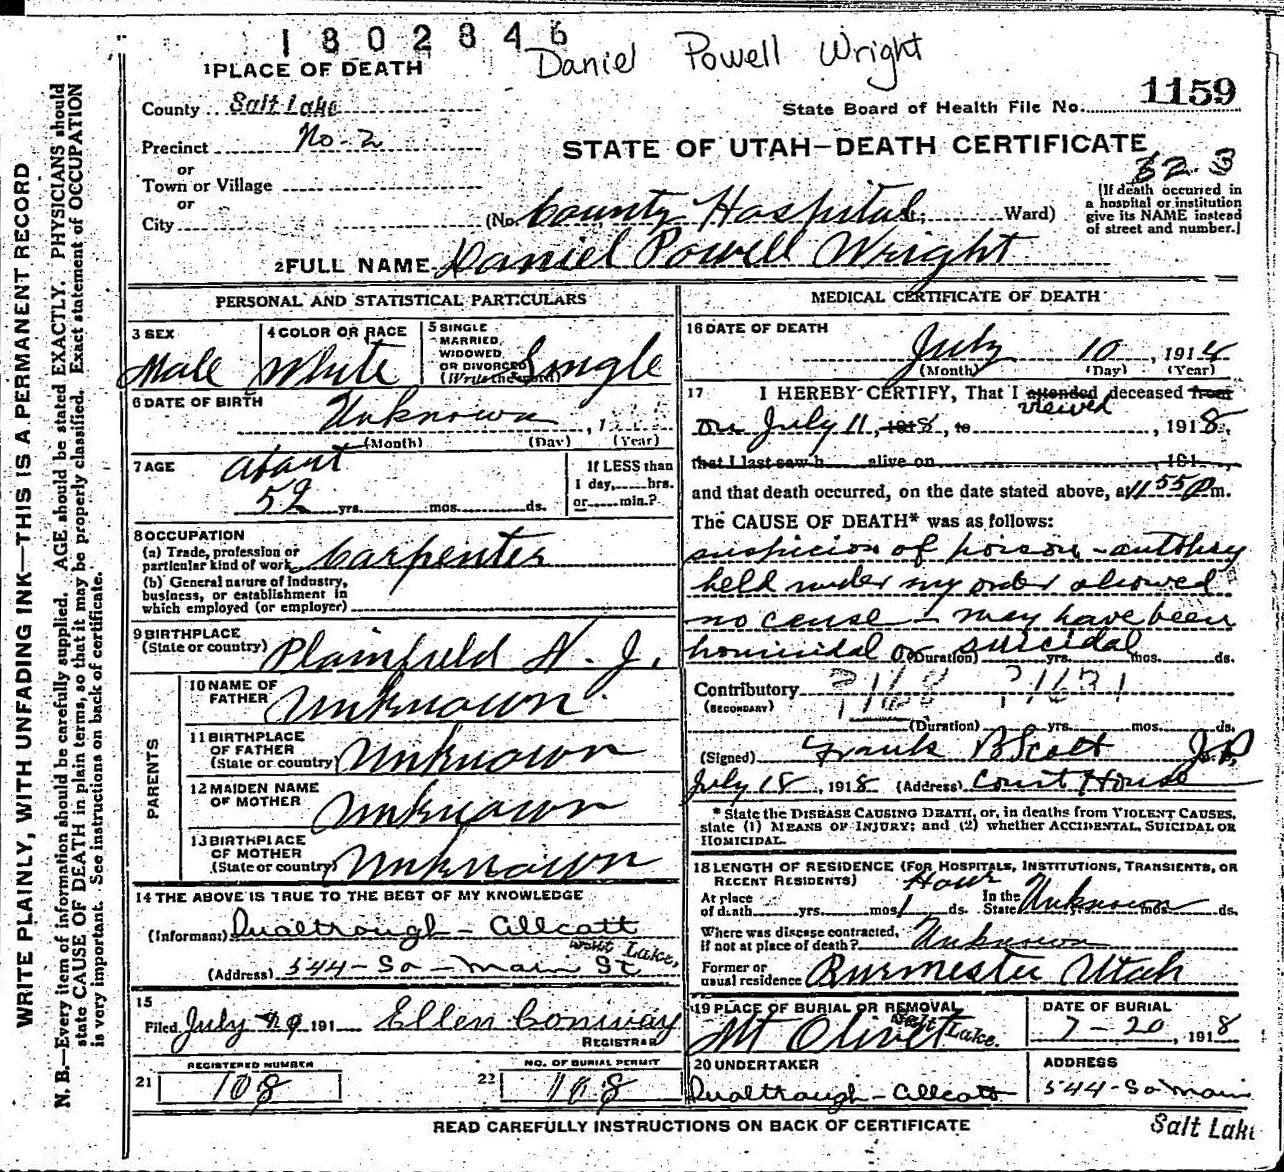 1802846
Daniel Powell Wright
1 PLACE OF DEATH
County Salt Lake
State Board of Health File No. 1159
Precinct No-2
STATE OF UTAH—DEATH CERTIFICATE
or
Town or Village
or
City
(No. County Hospital, Ward)
[If death occurred in
a hospital or institution
give its NAME instead
of street and number.]
2 FULL NAME Daniel Powell Wright
PERSONAL AND STATISTICAL PARTICULARS
3 SEX
Male
4 COLOR OR RACE
White
5 SINGLE
MARRIED,
WIDOWED
OR DIVORCED
(Write the word)
Single
6 DATE OF BIRTH
Unknown , 1
(Month) (Day) (Year)
7 AGE
about
52 yrs. mos. ds.
If LESS than
1 day, hrs.
or min.?
8 OCCUPATION
(a) Trade, profession or
particular kind of work Carpenter
(b) General nature of industry,
business, or establishment in
which employed (or employer)
9 BIRTHPLACE
(State or country) Plainfield N. J.
PARENTS
10 NAME OF
FATHER Unknown
11 BIRTHPLACE
OF FATHER
(State or country) Unknown
12 MAIDEN NAME
OF MOTHER Unknown
13 BIRTHPLACE
OF MOTHER
(State or country) Unknown
14 THE ABOVE IS TRUE TO THE BEST OF MY KNOWLEDGE
(Informant)
(Address) 544-So-Main St Salt Lake,
15
Filed July 191 Ellen Conway
REGISTRAR
21
REGISTERED NUMBER
108
22
NO. OF BURIAL PERMIT
MEDICAL CERTIFICATE OF DEATH
16 DATE OF DEATH
July 10, 191
(Month) (Day) (Year)
17 I HEREBY CERTIFY, That I attended viewed deceased from
on July 11, 1918, to , 1918,
that I last saw h alive on , 191 ,
and that death occurred, on the date stated above, at 11 55 P m.
The CAUSE OF DEATH* was as follows:
suspicion of poison - autopsy
held under my order showed
no cause - may have been
homicidal or suicidal
(Duration) yrs. mos. ds.
Contributory
(SECONDARY)
(Duration) yrs. mos. ds.
(Signed) Frank B Scott J.P.
July 18, 1918 (Address) Court House
* State the DISEASE CAUSING DEATH, or, in deaths from VIOLENT CAUSES,
state (1) MEANS OF INJURY; and (2) whether ACCIDENTAL, SUICIDAL OR
HOMICIDAL.
18 LENGTH OF RESIDENCE (FOR HOSPITALS, INSTITUTIONS, TRANSIENTS, OR
RECENT RESIDENTS)
At place
of death yrs. mos. 1 Hour ds.
In the
State Unknown yrs. mos. ds.
Where was disease contracted,
if not at place of death? Unknown
Former or
usual residence Burmester Utah
19 PLACE OF BURIAL OR REMOVAL
Mt Olivet Salt Lake.
DATE OF BURIAL
7-20, 1918
20 UNDERTAKER
ADDRESS
544-So Main
Salt Lake
READ CAREFULLY INSTRUCTIONS ON BACK OF CERTIFICATE
WRITE PLAINLY, WITH UNFADING INK—THIS IS A PERMANENT RECORD
N. B.—Every item of information should be carefully supplied. AGE should be stated EXACTLY. PHYSICIANS should
state CAUSE OF DEATH in plain terms, so that it may be properly classified. Exact statement of OCCUPATION
is very important. See instructions on back of certificate.